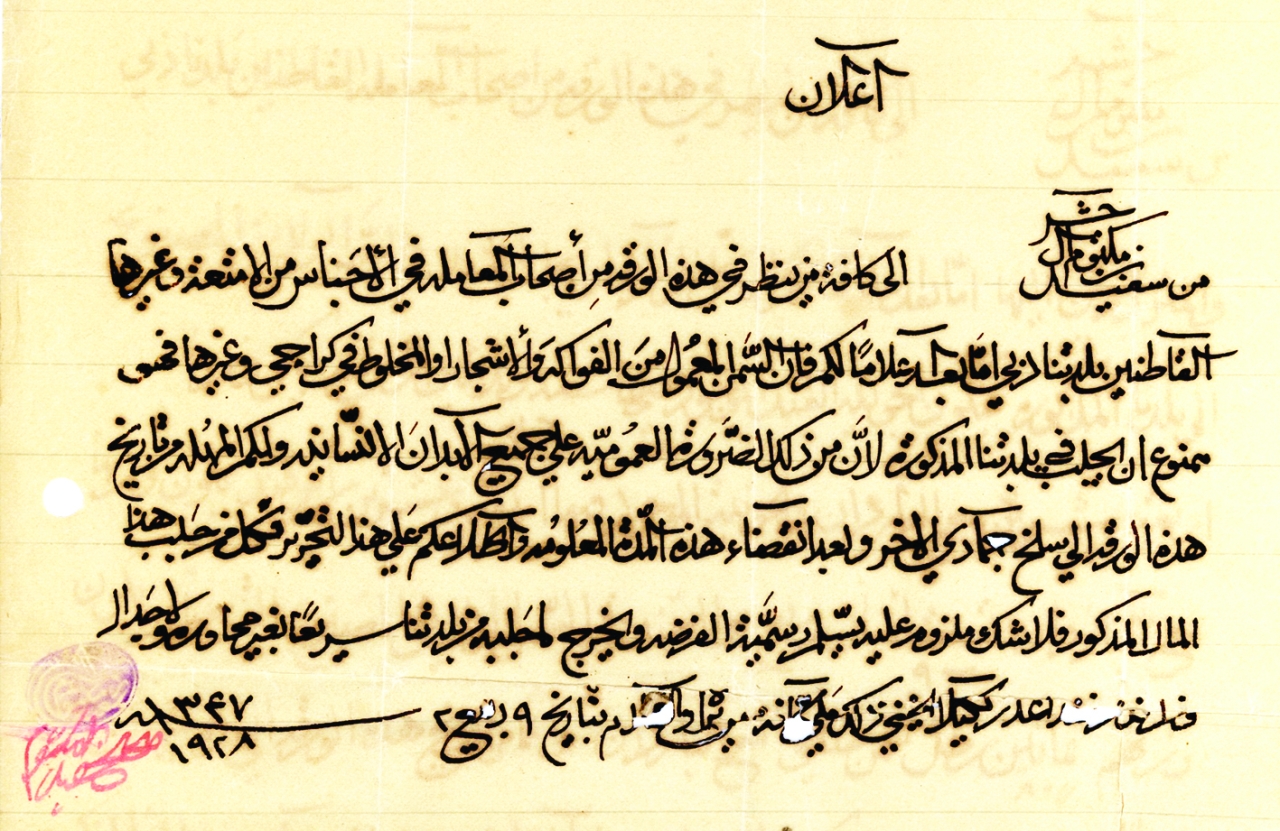 اعلان
من سعيد آل مكتوم حشر
الى كافة من ينظر في هذه الورقه من أصحاب المعامله في الأجناس من الامتعة وغيرها
القاطنين بلدتنا دبي امّا بعد اعلامًا لكم فان السَّمن المعمول منَ الفواكه وألاشجار او المخلوط في كراچي وغيرها فهو
ممنوع ان يجلب في بلدتنا المذكورة لانَّ من ذلك الضَّرورة العموميّه علي جميع الابدانَ الانسّانيه ولكم المهله من تاريخ
هذه الورقه الي سلخ جمادي الاخر وبعد انقضاء هذه المدّة المعلومه واطلاعكم عَلي هذا التحرير فكل من جلب هذا
المال المذكور فلا شك ملزوم عليه يسّلم رسميَّة الفرضه ويخرج لمجلبه من بلدتنا سريعًا بغير محاوره ولا جدال
عذر كيلا يخفي ذلك من تمام والسلام بتاريخ ٩ ربيع ٢ ١٣٤٧
١٩٢٨